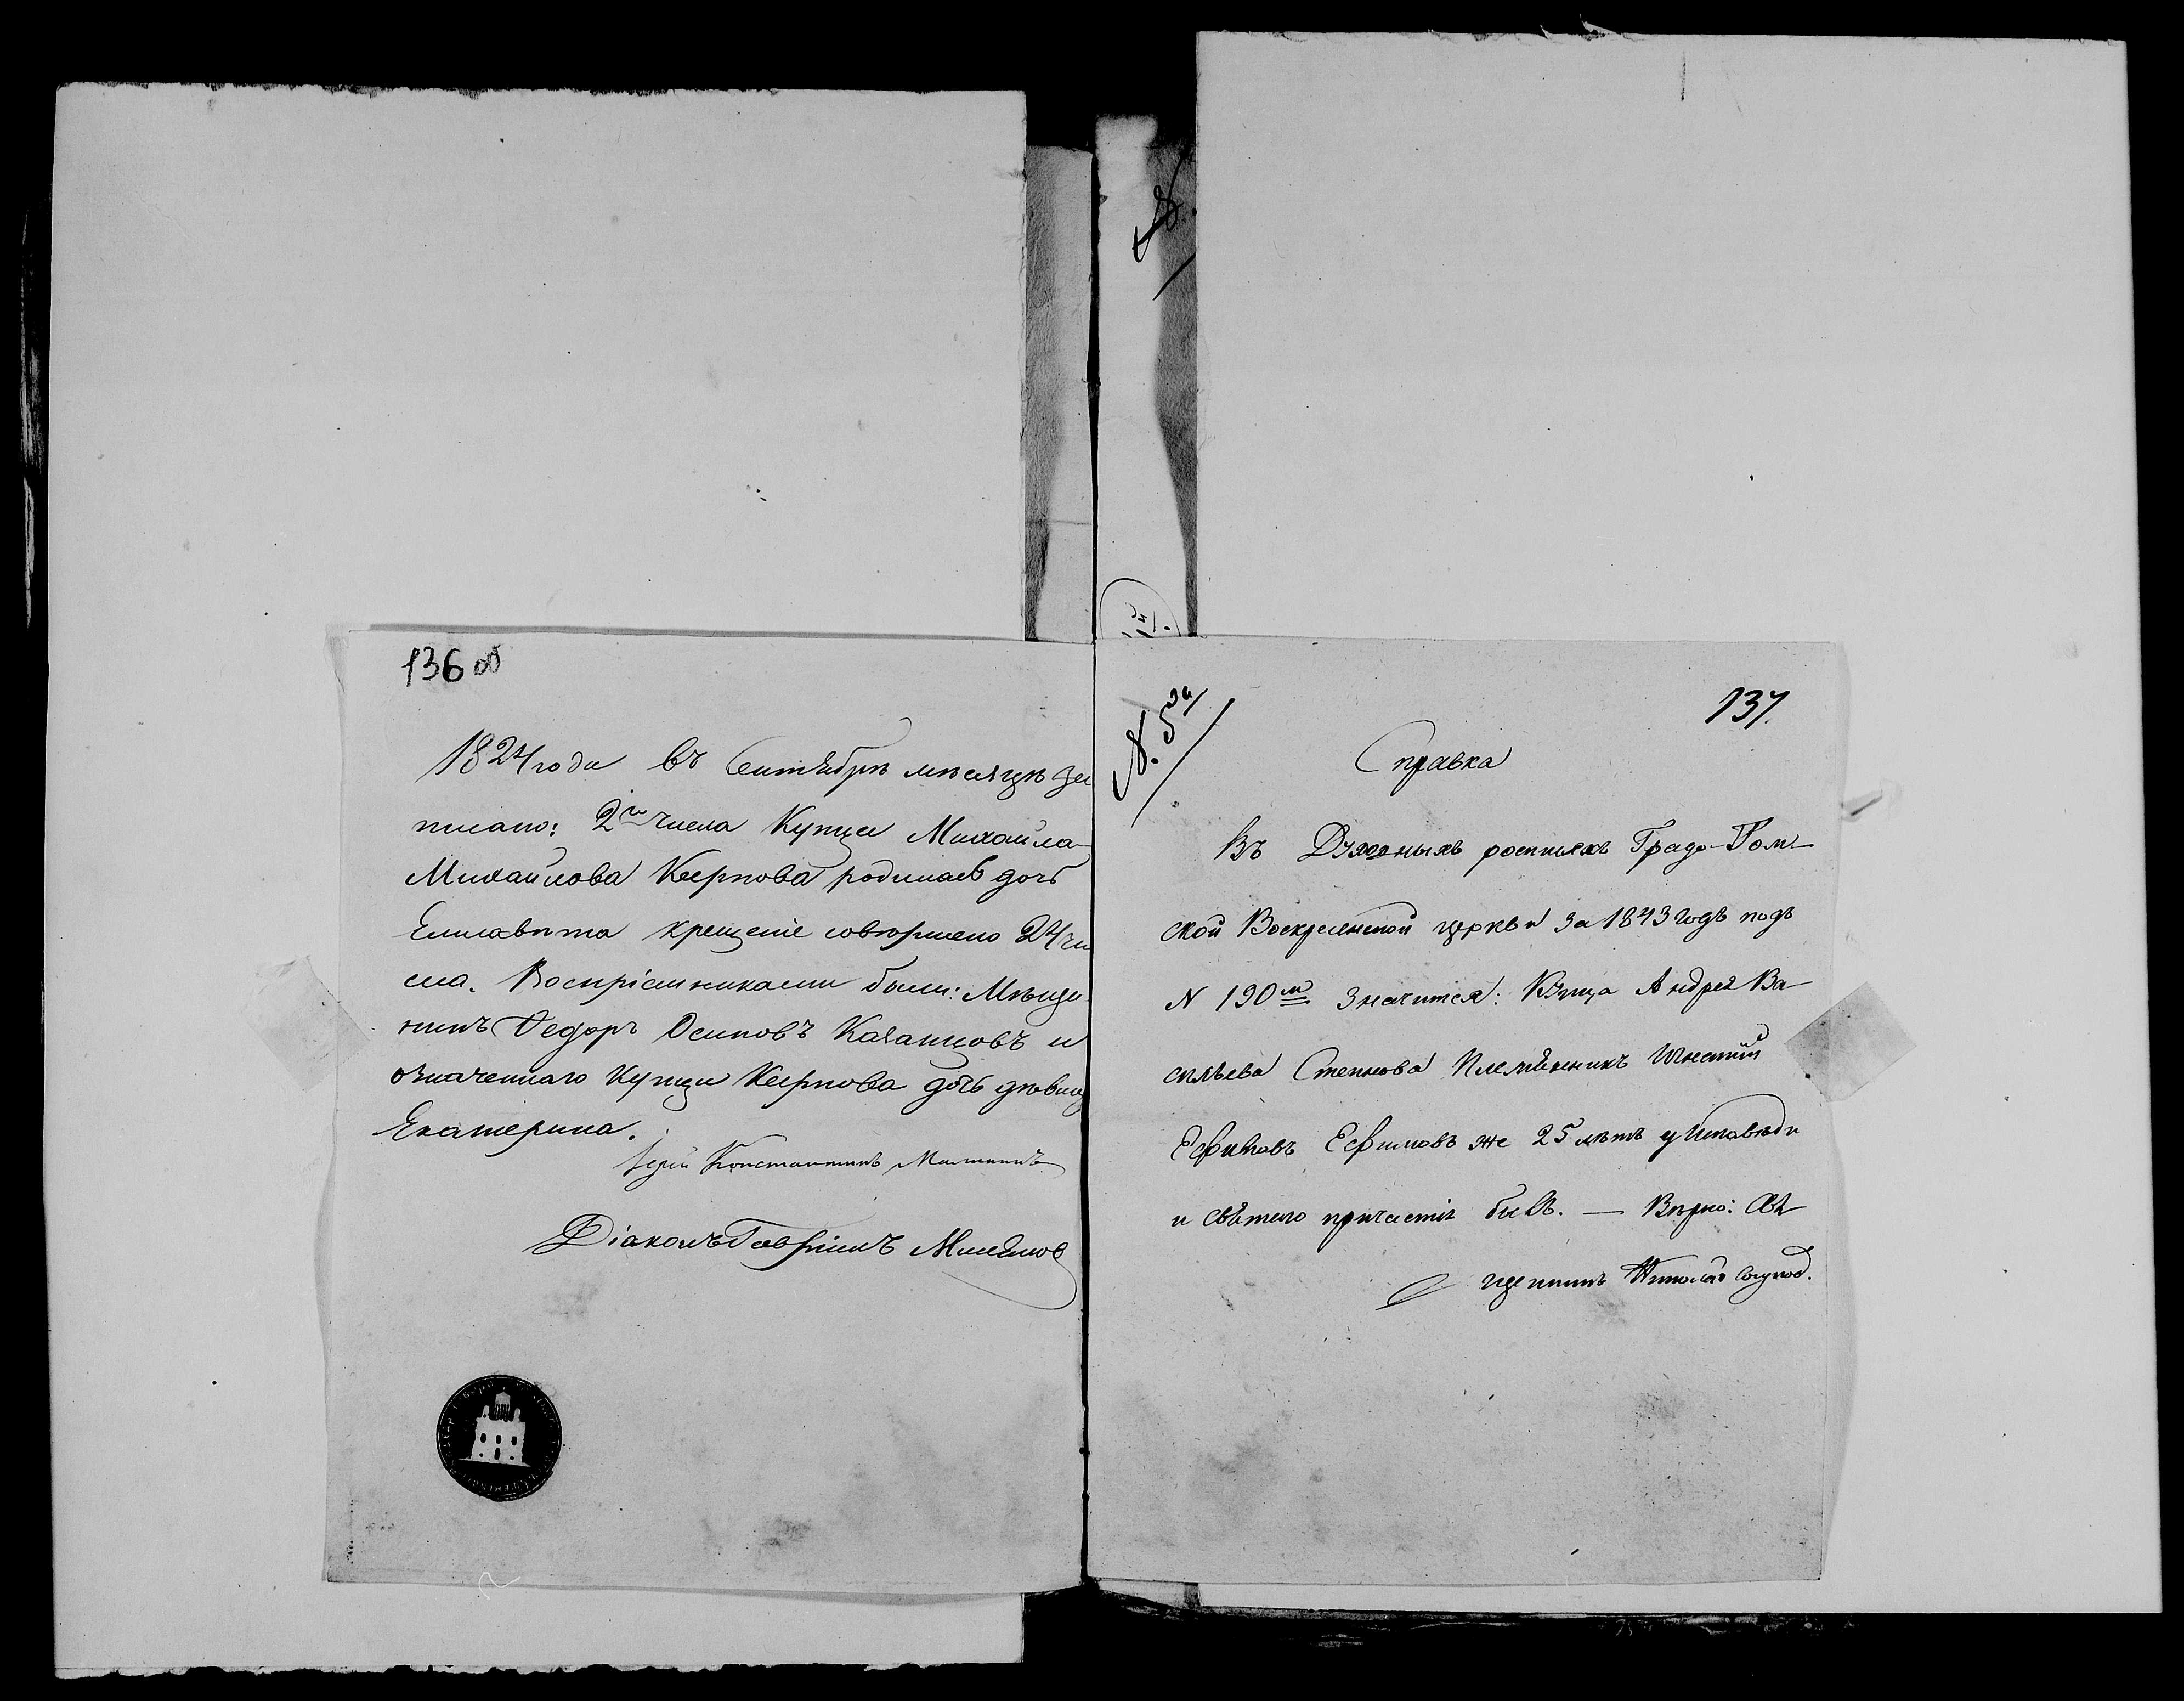 136 об
1824 года въ Сентябрѣ мѣсяцѣ за
писано: 2го числа Купца Михайла
Михайлова Кеернова родилась дочь
Елисавѣта крещеніе совершено 24 чи
сла. Воспріемниками были: Мѣща
нинъ Федоръ Осиповъ Казанцовъ и
означеннаго Купца дочь дѣвица
Екатерина.
Іерей Константинъ
Діаконъ Гавріилъ
137.
№. 5й
Справка
Въ Духовныхъ росписяхъ Градо-Том-
ской Воскресенской церкви за 1843 годъ подъ
N 190м значится: Купца Андрея Ва-
сильева Племянникъ
Ефимовъ Ефимовъ же 25 лѣтъ у исповѣди
и святаго причастія былъ. — Вѣрно: Свя-
щенникъ Николай